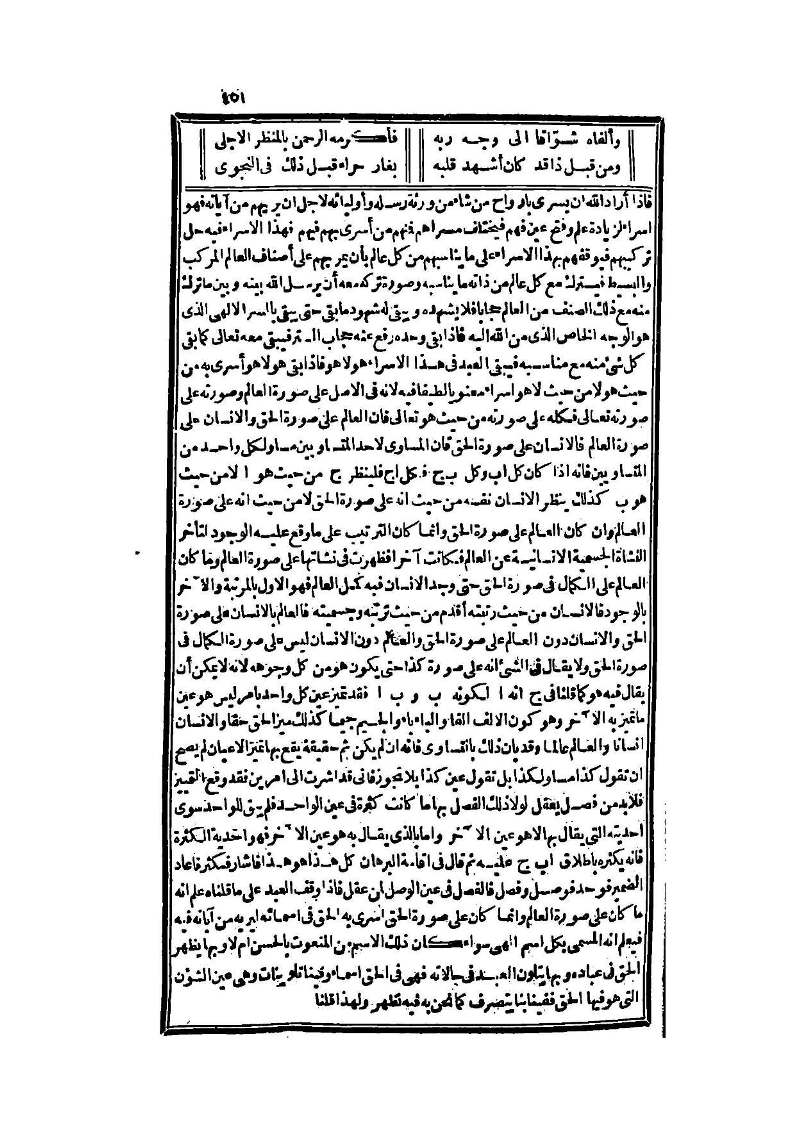 ٤٥١
وألفاه شوّاقا الى وجه ربه فأكرمه الرحمن بالمنظر الاجلى
ومن قبل ذا قد كان أشهد قلبه بغار حراء قبل ذلك فى النجوى
فاذا أراد الله ان يسرى بارواح من شاء من ورثة رسله وأوليائه لاجل ان يريهم من آياته فهو
اسراء لزيادة علم وفتح عين فهم فيختلف مسراهم فنهم من أسرى بهم فيهم فهذا الاسراء فيه حل
تركيبهم فيوقفهم بهذا الاسراء على ما يناسبهم من كل عالم بأن يمر بهم على أصناف العالم المركب
والبسيط فيترك مع كل عالم من ذاته ما يناسبه وصورة تركه معه أن يرسل الله بينه وبين ما ترك
منه مع ذلك الصنف من العالم حجابا فلا يشهده ويبقى له شهود ما بقى حتى يبقى بالسر الالهى الذى
هو الوجه الخاص الذى من الله اليه فاذا بقى وحده رفع عنه حجاب الستر فيبقى معه تعالى كما بقى
كل شئ منه مع مناسبه فيبقى العبد فى هذا الاسراء هو لا هو فاذا بقى هو لا هو أسرى به من
حيث هو لا من حيث لا هو اسراء معنويا لطيفا فيه لانه فى الاصل على صورة العالم وصورته على
صورته تعالى فكله على صورته من حيث هو تعالى فان العالم على صورة الحق والانسان على
صورة العالم فالانسان على صورة الحق فان المساوى لاحد المتساويين مساو لكل واحد من
المتساويين فانه اذا كان كل اب وكل ب ج فكل اج فلينظر ج من حيث هو ا لا من حيث
هو ب كذلك ينظر الانسان نفسه من حيث انه على صورة الحق لا من حيث انه على صورة
العالم وان كان العالم على صورة الحق وانما كان الترتيب على ما وقع عليه الوجود لتأخر
النشاة الجسمية الانسانية عن العالم فكانت آخرا فظهرت فى نشاتها على صورة العالم وما كان
العالم على الكمال فى صورة الحق حتى وجد الانسان فيه كمل العالم فهو الاول بالمرتبة والآخر
بالوجود فالانسان من حيث رتبته أقدم من حيث ترتبه وجسميته فالعالم بالانسان على صورة
الحق والانسان دون العالم على صورة الحق والعالم دون الانسان ليس على صورة الكمال فى
صورة الحق ولا يقال فى الشئ انه على صورة كذا حتى يكون هو من كل وجوهه لانه لا يمكن أن
يقال فيه هو كما قلنا فى ج انه ا لكونه ب و ب ا فقد تميز عين كل واحد بامر ليس هو عين
ما تميز به الآخر وهو كون الالف الفا والباء باء والجيم جيما كذلك ميز الحق حقا والانسان
انسانا والعالم عالما وقد بان ذلك بالتساوى فانه ان لم يكن ثم حقيقة يقع بها تميز الاعيان لم يصح
ان تقول كذا مساو لكذا بل تقول عين كذا بلا تجوز فانى قد اشرت الى امرين فقد وقع التمييز
فلا بد من فصل يعقل لولا ذلك الفصل بها ما كانت كثرة فى عين الواحد فلم يبق للواحد سوى
احديته التى يقال بها لا هو عين الآخر واما بالذى يقال به هو عين الآخر فهو احدية الكثرة
فانه يكثره باطلاق اب ج عليه ثم قال فى اقامة البرهان كل هذا هو هذا فاشار فكثر فاعاد
الضمير فوحد فوصل وفصل فالفصل فى عين الوصل لمن عقل فاذا وقف العبد على ما قلناه علم انه
ما كان على صورة العالم وانما كان على صورة الحق اسرى به الحق فى اسمائه ليريه من آياته فيه
فيعلم انه المسمى بكل اسم الهى سواء كان ذلك الاسم من المنعوت بالحسن ام لا وبها يظهر
الحق فى عباده وبها يتلون العبد فى حالاته فهى فى الحق اسماء وفينا تلوينات وهى عين الشؤن
التى هو فيها الحق ففينا بنا يتصرف كما نحن به فيه نظهر ولهذا قلنا